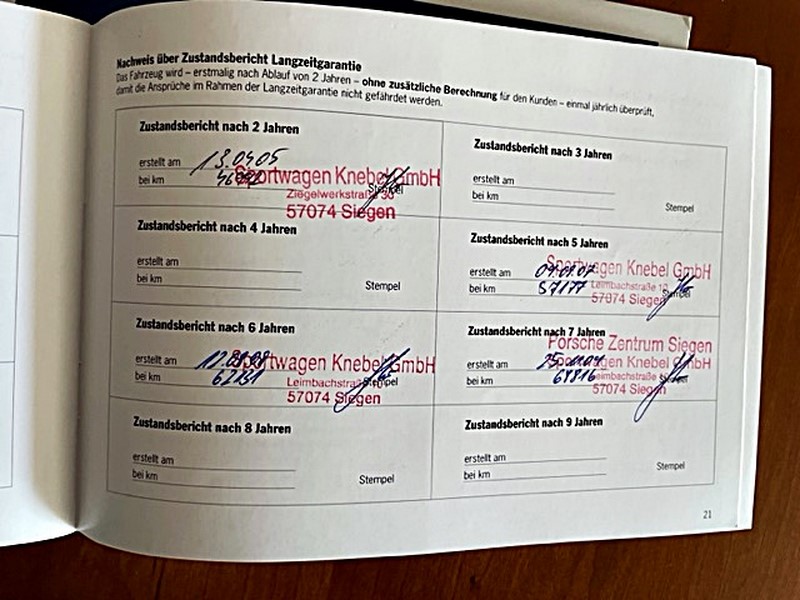 Nachweis über Zustandsbericht Langzeitgarantie
Das Fahrzeug wird – erstmalig nach Ablauf von 2 Jahren – ohne zusätzliche Berechnung für den Kunden – einmal jährlich überprüft,
damit die Ansprüche im Rahmen der Langzeitgarantie nicht gefährdet werden.
Zustandsbericht nach 2 Jahren
erstellt am 13.0405
bei km
Stempel
Sportwagen Knebel GmbH
Ziegelwerkstraße 30
57074 Siegen
Zustandsbericht nach 3 Jahren
erstellt am
bei km
Stempel
Zustandsbericht nach 4 Jahren
erstellt am
bei km
Stempel
Zustandsbericht nach 5 Jahren
erstellt am
bei km 57177
Stempel
Sportwagen Knebel GmbH
Leimbachstraße
57074 Siegen
Zustandsbericht nach 6 Jahren
erstellt am
bei km
Stempel
Sportwagen Knebel GmbH
Leimbachstraße
57074 Siegen
Zustandsbericht nach 7 Jahren
erstellt am
bei km 67816
Stempel
Porsche Zentrum Siegen
Sportwagen Knebel GmbH
Leimbachstraße
57074 Siegen
Zustandsbericht nach 8 Jahren
erstellt am
bei km
Stempel
Zustandsbericht nach 9 Jahren
erstellt am
bei km
Stempel
21